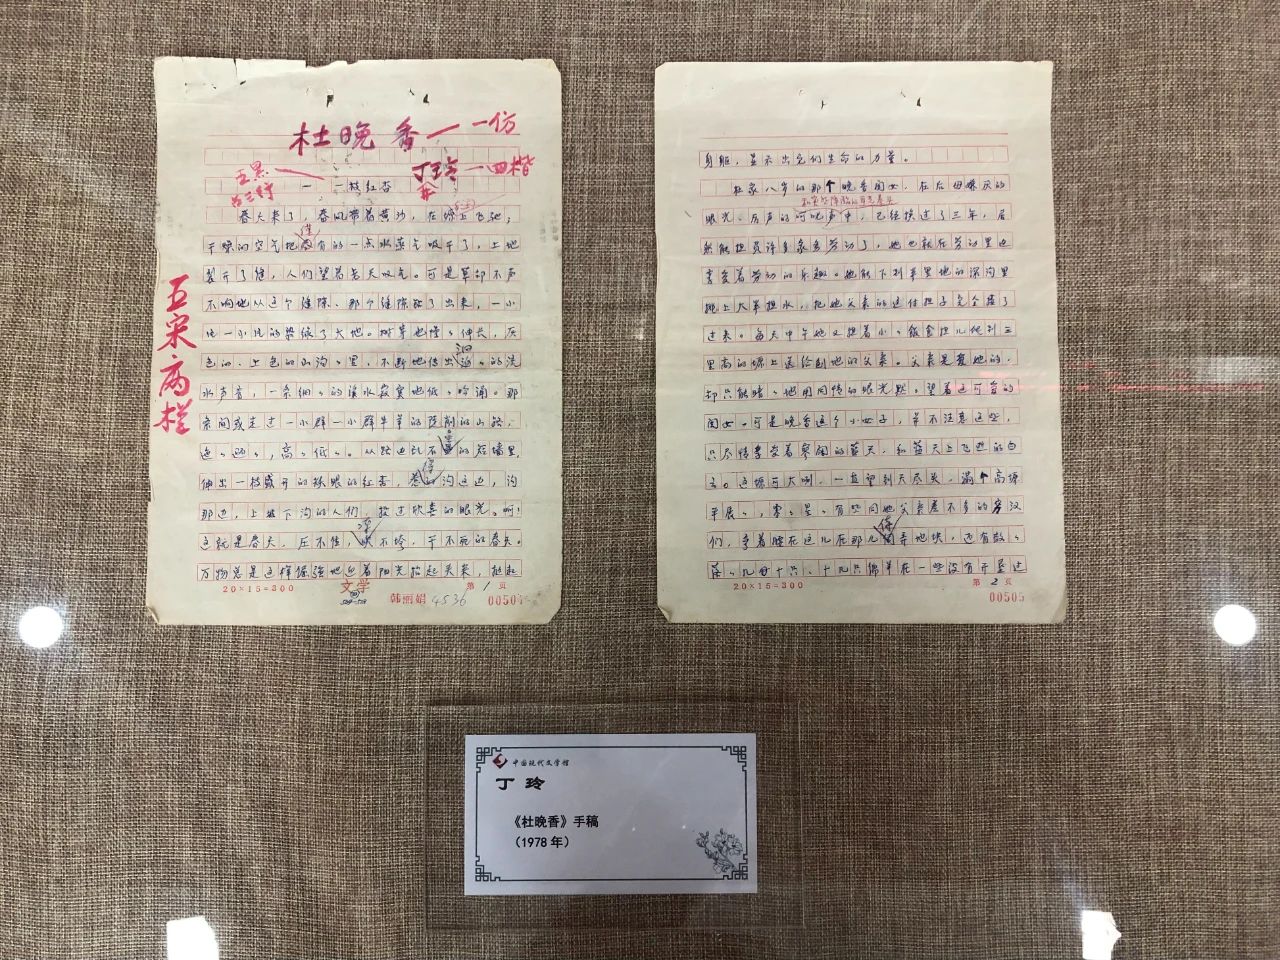 杜晚香——一份
丁玲—四楷
五黑
占三行
一 一枝红杏
五宋两栏
春天来了，春风带着黄沙，在塬上飞驰；
干燥的空气把仅有的一点水蒸气吸干了，土地
裂开了缝，人们望着老天叹气。可是草却不声
不响地从这个缝隙、那个缝隙钻了出来，一小
片一小片的染绿了大地。树芽也慢慢伸长，灰
色的、土色的山沟沟里，不断地传出汩汩的流
水声音，一条细细的溪水寂寞地低低吟诵。那
条间或走过一小群一小群牛羊的陡削的山路，
迤迤逦逦，高高低低。从路边乱石垒的短墙里，
伸出一枝盛开的耀眼的红杏，惹得沟这边，沟
那边，上坡下沟的人们，投过欣喜的眼光。啊！
这就是春天，压不住，冻不垮，干不死的春天。
万物总是这样倔强地迎着阳光抬起头来，挺起
20×15=300
文学
第1页
韩丽娟 4536
00504
身躯，显示出它们生命的力量。
杜家八岁的那个晚香闺女，在后母嫌厌的
眼光、厉声的呵叱声中，已经挨过了三年，居
然能担负许多家务劳动了，她也就在劳动里边
享受着劳动的乐趣。她能下到半里地的深沟里
挑上大半担水，把她父亲的这付担子完全接了
过来。每天中午她又担着小小饭食担儿往到三
里高的塬上送给刨地的父亲。父亲是爱她的，
却只能暗暗地用同情的眼光默默望着这可爱的
闺女。可是晚香这个小女子，并不注意这些，
只尽情享受着寥阔的蓝天，和蓝天上飞逝的白
云。这塬可大啊，一直望到天尽头，满个高塬
平展展，零零星星有些同她父亲差不多的穷汉
们，弯着腰在这儿在那儿侍弄地块，还有散散
落落几母十六、十几只绵羊在一些没有开垦过
20×15=300
第2页
00505
中国现代文学馆
丁玲
《杜晚香》手稿
（1978年）